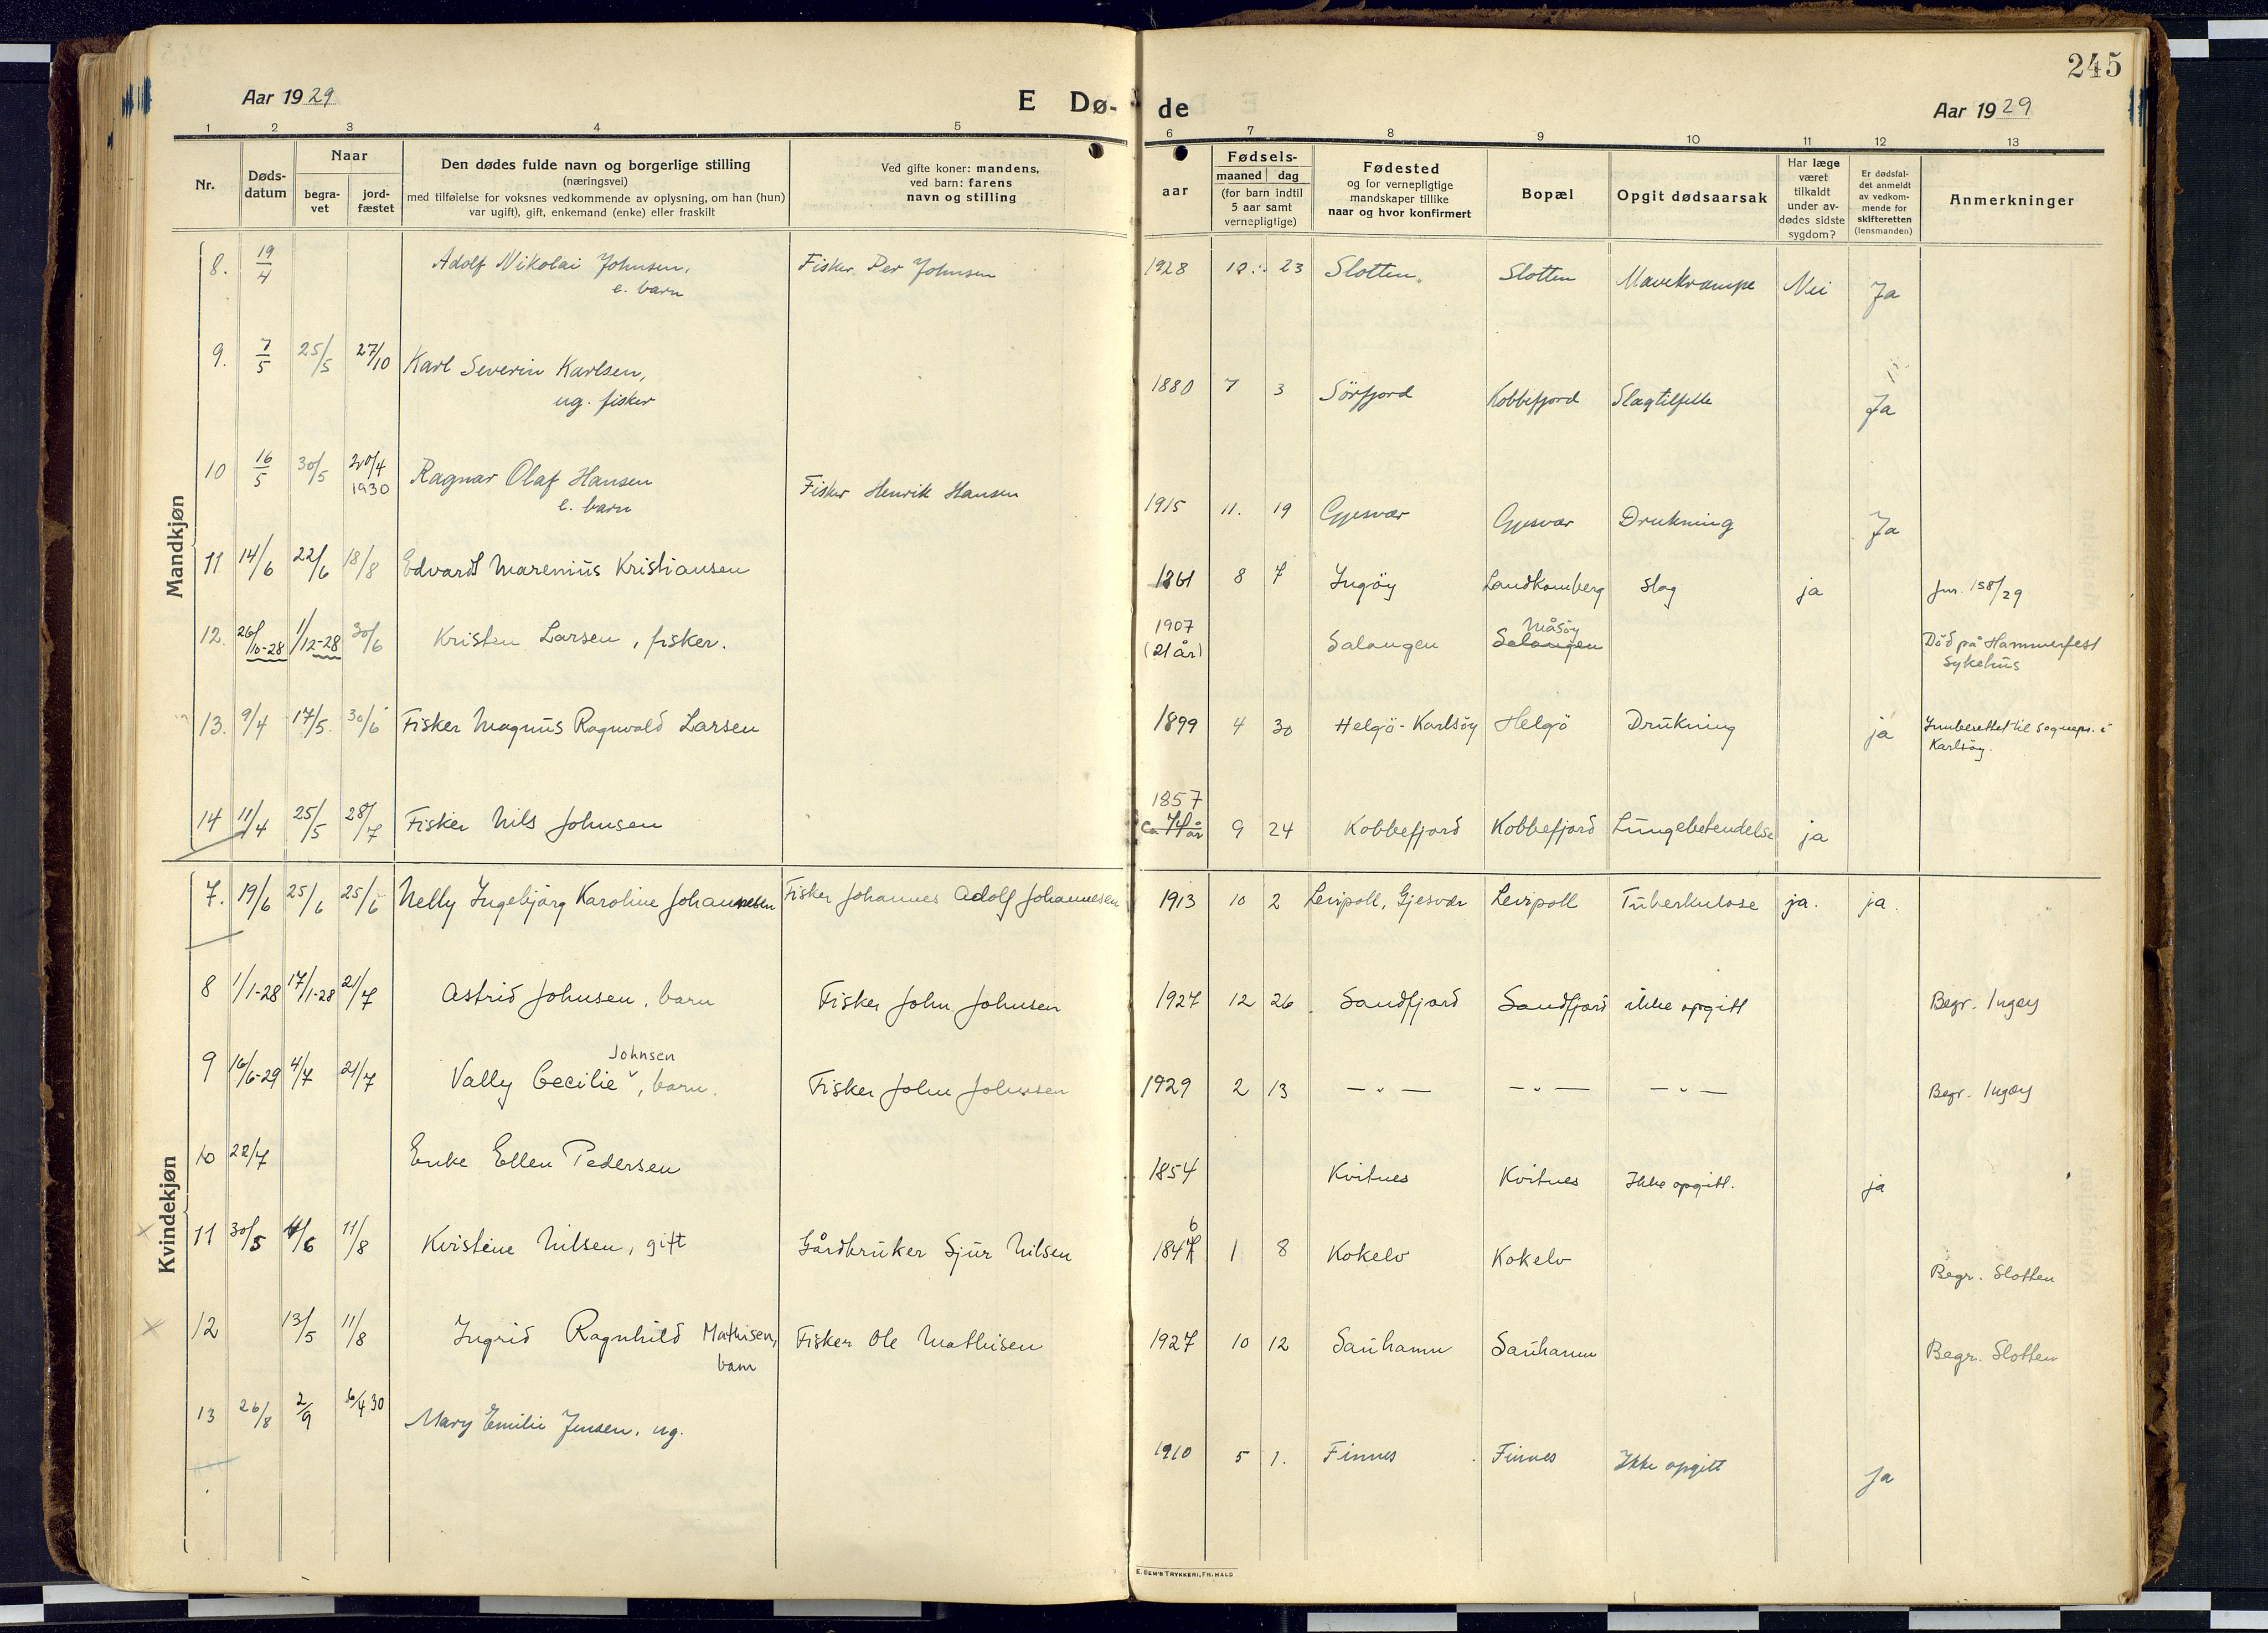 245
Aar 1929 E Dø- de Aar 1929
1 2 3 4 5 6 7 8 9 10 11 12 13
Nr.
Døds-
datum
Naar
begra-
vet
jord-
fæstet
Den dødes fulde navn og borgerlige stilling
(næringsvei)
med tilføielse for voksnes vedkommende av oplysning, om han (hun)
var ugift), gift, enkemand (enke) eller fraskilt
Ved gifte koner: mandens,
ved barn: farens
navn og stilling
aar
Fødsels-
maaned dag
(for barn indtil
5 aar samt
vernepligtige)
Fødested
og for vernepligtige
mandskaper tillike
naar og hvor konfirmert
Bopæl
Opgit dødsaarsak
Har læge
været
tilkaldt
under av-
dødes sidste
sygdom?
Er dødsfal-
det anmeldt
av vedkom-
mende for
skifteretten
(lensmanden)
Anmerkninger
Mandkjøn
8. 19/4 Adolf Nikolai Johnsen, Fisker Per Johnsen 1928 23 Slotten Slotten Mavekrampe Nei Ja
e. barn
9. 7/5 25/5 27/10 Karl Severin Karlsen, 1880 7 3 Sörfjord Kobbefjord Slagtilfelle Ja
ug. fisker
10 16/5 30/5 20/4 1930 Ragnar Olaf Hansen Fisker Henrik Hansen 1915 11. 19 Gjesvær Gjesvær Drukning Ja
e. barn
11 14/6 22/6 18/8 Edvard Marenius Kristiansen 1861 8 7 Ingöy Landkamberg slag ja Jnr. 158/29
12. 26/10-28 1/12-28 30/6 Kristen Larsen, fisker. 1907 (21 år) Salangen Måsöy Salangen Död på Hammerfest
sykehus
13. 9/4 17/5. 30/6 Fisker Magnus Ragnvald Larsen 1899 4 30 Helgö-Karlsöy Helgö Drukning ja Innberettet til sognepr. i
Karlsöy.
14 11/4 25/5 28/7 Fisker Nils Johnsen 1857 ca 74 år 9 24 Kobbefjord Kobbefjord Lungebetendelse ja
Kvindekjøn
7. 19/6 25/6 25/6 Nelly Ingebjörg Karoline Johannesen Fisker Johannes Adolf Johannesen 1913 10 2 Leirpoll, Gjesvær Leirpoll Tuberkulose ja. ja.
8 1/1-28 17/1-28 21/7 Astrid Johnsen, barn Fisker John Johnsen 1927 12 26 Sandfjord Sandfjord ikke opgitt Begr. Ingöy
9 16/6-29 4/7 21/7 Vally Cecilie Johnsen, barn. Fisker John Johnsen 1929 2 13 — " — — " — — " — Begr. Ingöy
10 22/7 Enke Ellen Pedersen 1854 Kvitnes Kvitnes Ikke opgitt. ja
11 30/5 4/6 11/8 Kristine Nilsen, gift Gårdbruker Sjur Nilsen 1846 1 8 Kokelv Kokelv Begr. Slotten
12 13/5 11/8 Ingrid Ragnhild Mathisen, Fisker Ole Mathisen 1927 10 12 Sauhamn Sauhamn Begr. Slotten
barn
13 26/8 2/9 6/4 30 Mary Emilie Jensen, ug. 1910 5 1. Finnes Finnes Ikke opgitt Ja
E. SEM'S TRYKKERI, FR.HALD